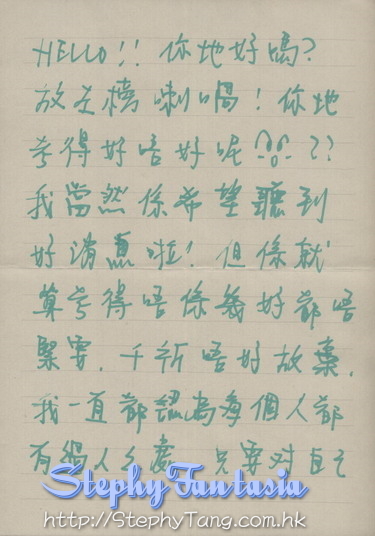 HELLO!! 你地好嗎?
放左榜喇喎! 你地
考得好唔好呢??
我當然係希望聽到
好消息啦! 但係就
算考得唔係幾好都唔
緊要, 千祈唔好放棄,
我一直都認為每個人都
有過人之處 只要对自己
Stephy Fantasia
http://StephyTang.com.hk